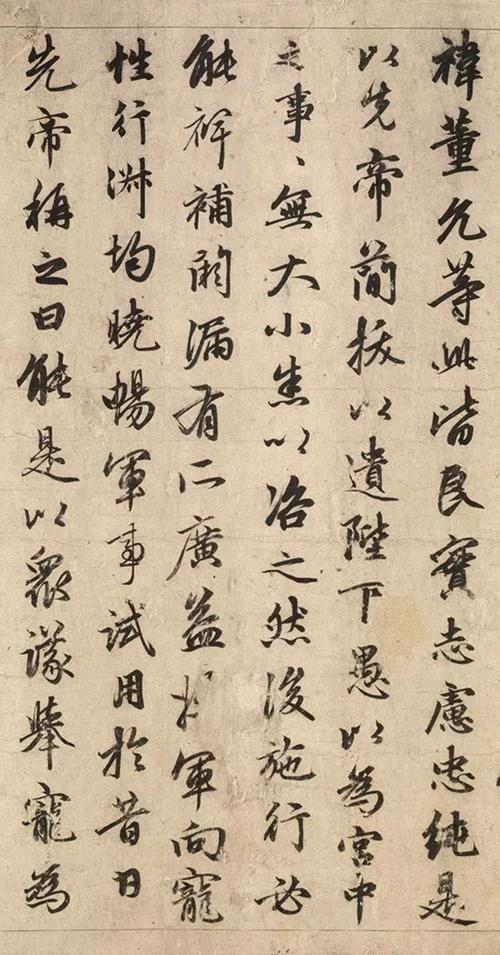 禕董允等此皆良實志慮忠純是
以先帝簡拔以遺陛下愚以為宮中
之事、無大小悉以咨之然後施行必
能裨補闕漏有所廣益將軍向寵
性行淑均曉暢軍事試用於昔日
先帝稱之曰能是以眾議舉寵為